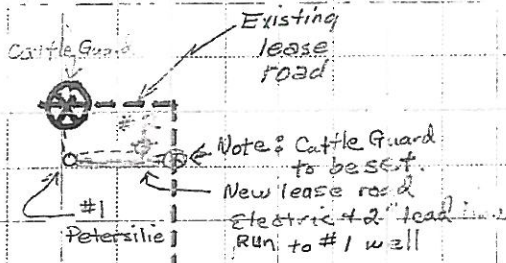 Existing
lease
road
Cattle Guard
Note: Cattle Guard
to be set.
New lease road
Electric & 2" lead
Run to #1 well
#1
Petersilie